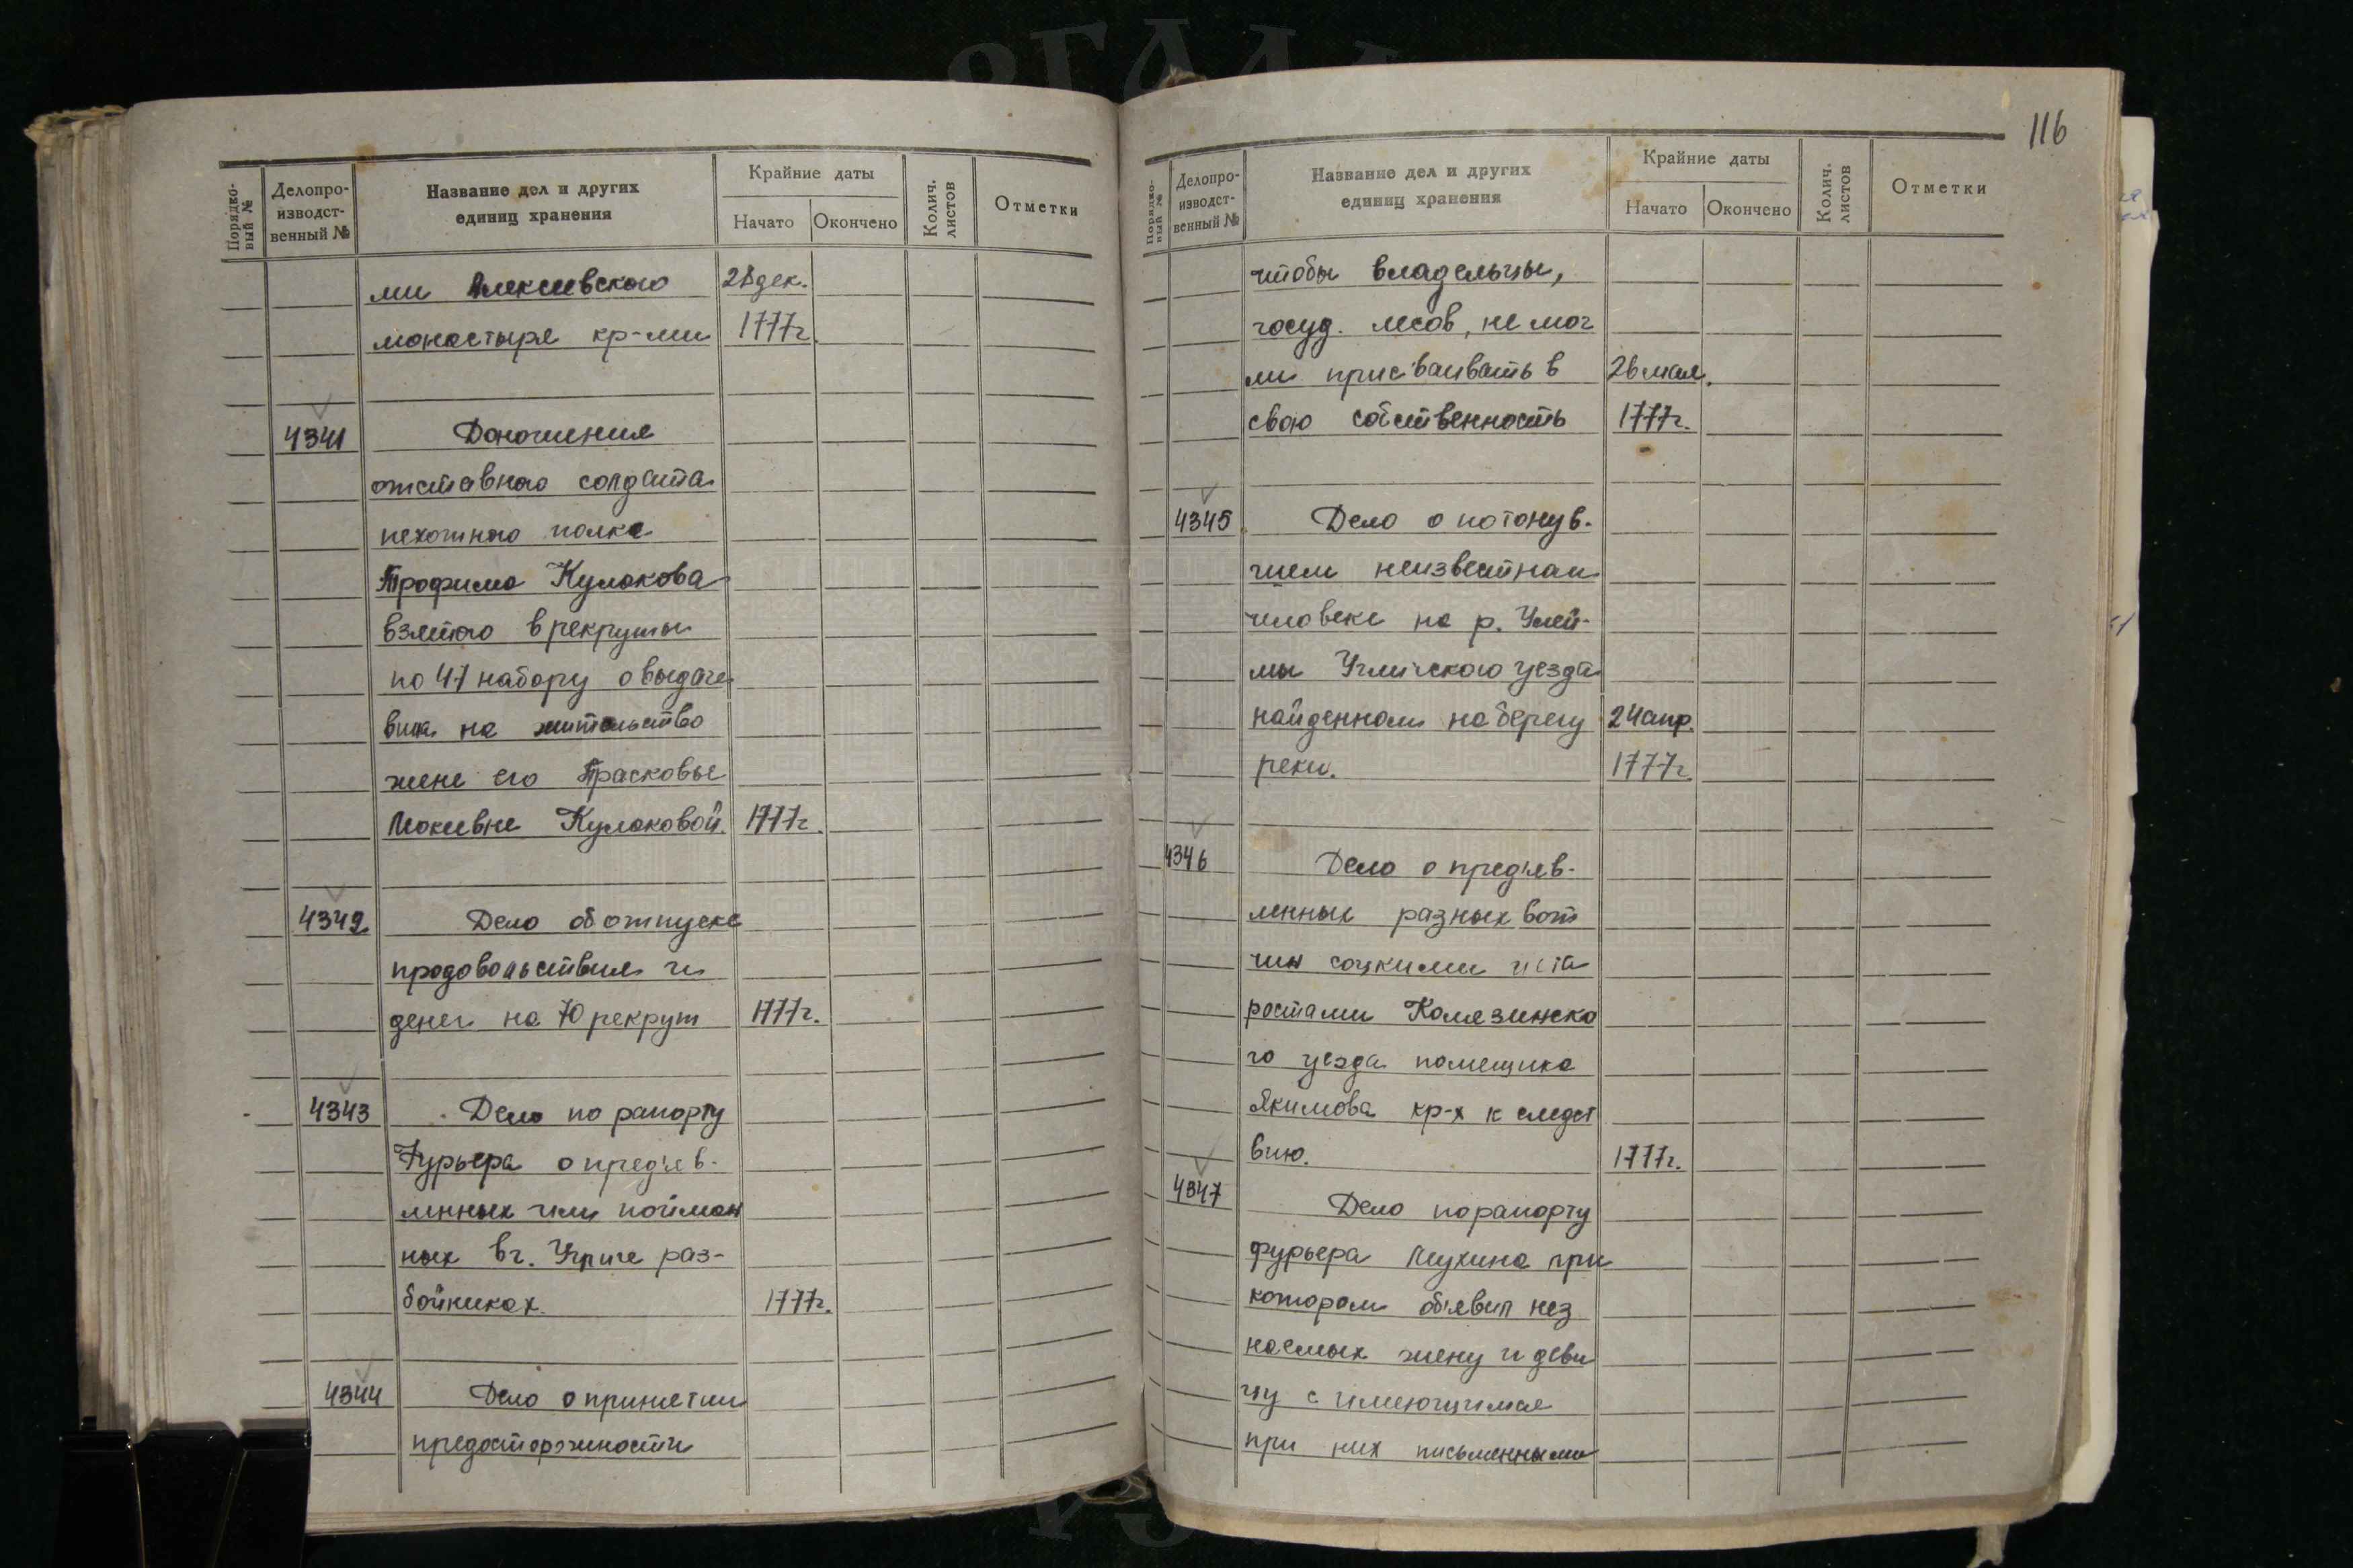 116
Порядко-
вый №
Делопро-
изводст-
венный №
Название дел и других
единиц хранения
Крайние даты
Начато
Окончено
Колич.
листов
Отметки
ми Алексеевского 28 дек.
монастыря кр-ми 1777г.
4341 Доношения
отставного солдата
пехотного полка
Трофима Кулакова
взятого в рекруты
по 47 набору о выдаче
вида на жительство
жене его Прасковье
Мокевне Кулаковой. 1777г.
4342 Дело об отпуске
продовольствия и
денег на 70 рекрут 1777г.
4343 Дело по рапорту
Фурьера о пред'яв-
ленных им пойман
ных в г. Угличе раз-
бойниках. 1777г.
4344 Дело о принятии
предосторожности
Порядко-
вый №
Делопро-
изводст-
венный №
Название дел и других
единиц хранения
Крайние даты
Начато
Окончено
Колич.
листов
Отметки
чтобы владельцы,
госуд. лесов, не мог
ли присваивать в 26 мая.
свою собственность 1777г.
4345 Дело о потонув-
шем неизвестном
человеке на р. Улей-
мы Угличского уезда
найденном на берегу 24 апр.
реки. 1777г.
4346 Дело о пред'яв-
ленных разных вот
чин соцкими и ста
ростами Колязинско
го уезда помещика
Якимова кр-х к следст
вию. 1777г.
4347 Дело по рапорту
фурьера Мухина при
котором об'явил нез
наемых жену и деви
цу с имеющимся
при них письменными